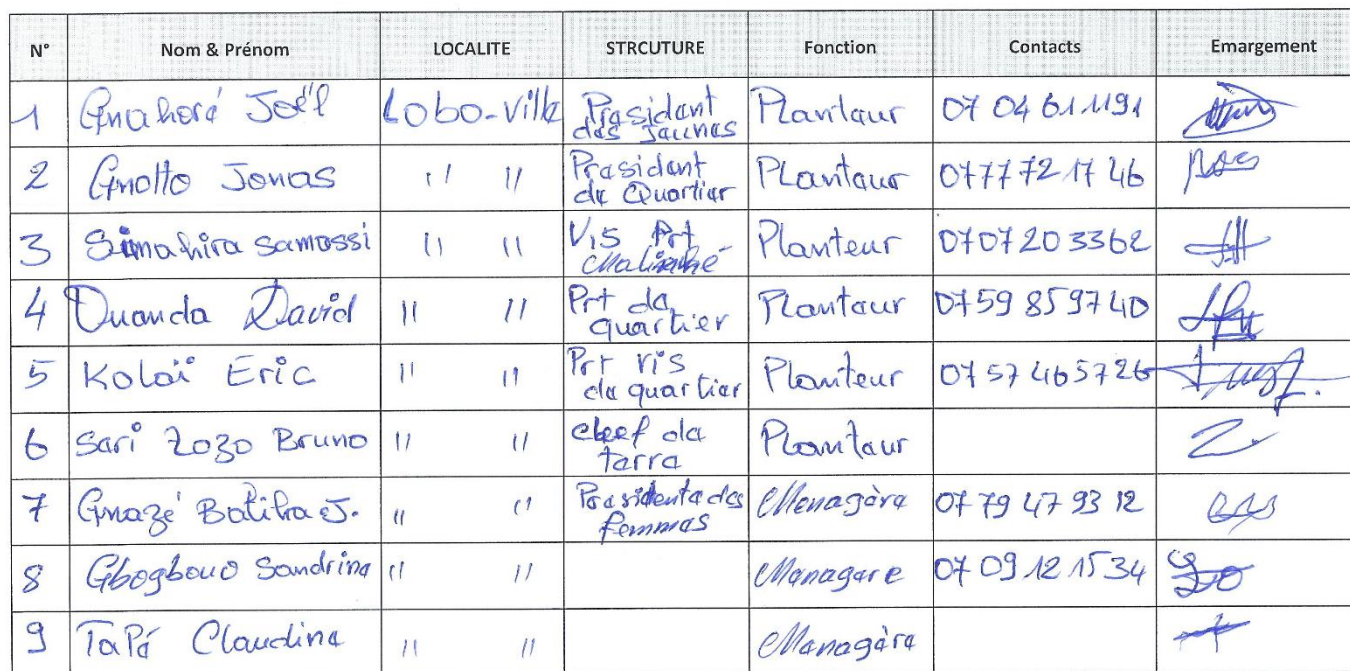 N° Nom & Prénom LOCALITE STRCUTURE Fonction Contacts Emargement
1 Gnahoré Joël Lobo-ville Président des Jeunes Planteur 07 04 61 11 91
2 Gnotto Jonas " " Président de Quartier Planteur 07 77 72 17 46
3 Simahira Samossi " " Vis Prt Malinké Planteur 07 07 20 33 62
4 Ouanda David " " Prt de quartier Planteur 07 59 85 97 40
5 Koloï Eric " " Prt vis de quartier Planteur 07 57 46 57 26
6 Sari Zozo Bruno " " cheef de terre Planteur
7 Gnazé Batiha J. " " Présidente des femmes Menagère 07 79 47 93 12
8 Gbogbouo Sandrine " " Menagere 07 09 12 15 34
9 TaPé Claudine " " Menagère